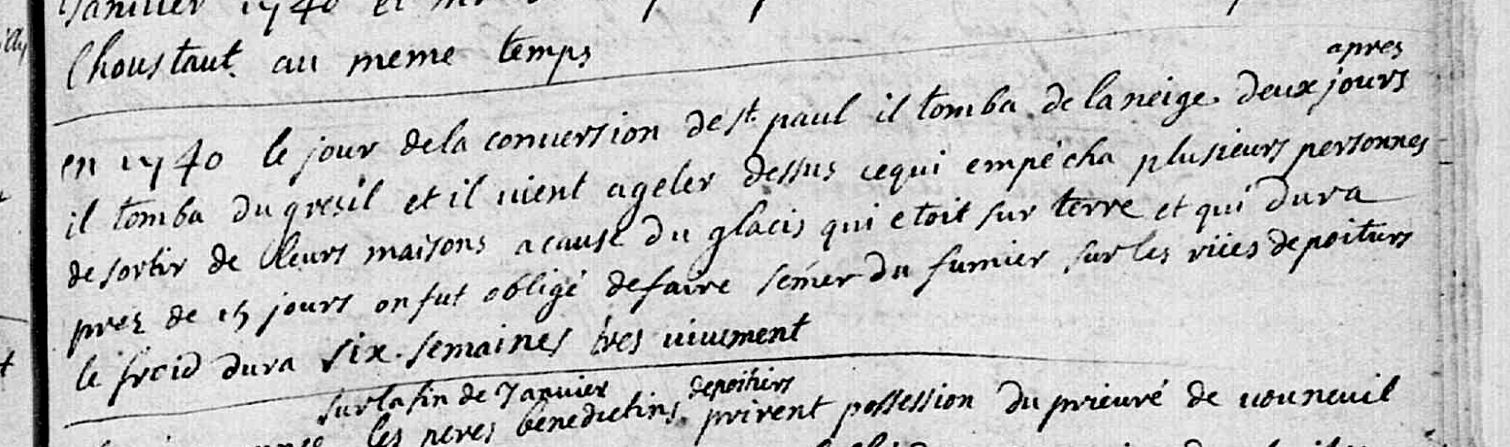 Janvier 1740 et
Choustaut au meme temps
apres
en 1740 le jour dela conversion de st paul il tomba dela neige. deux jours
il tomba du gresil et il vient a geler dessus cequi empécha plusieurs personnes
de sortir de leurs maisons a cause du glacis qui etoit sur terre et qui dura
prez de 15 jours on fut obligé defaire sémer du fumier sur les rües depoitiers
le froid dura six semaines tres vivement
sur la fin de Janvier depoitiers
les peres benedictins prirent possession du prieuré de vouneuil